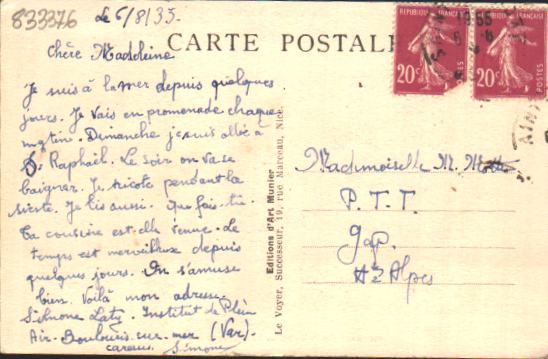 833376
le 6/8/35.
Chère Madeleine
CARTE POSTALE
REPUBLIQUE FRANÇAISE
20c
POSTES
REPUBLIQUE FRANÇAISE
20c
POSTES
Je suis à la mer depuis quelques
jours. Je vais en promenade chaque
matin. Dimanche je suis allée à
St Raphaël. Le soir on va se
baigner. Je tricote pendant la
sieste. Je lis aussi. Que fais-tu
Ta cousine est-elle venue. Le
temps est merveilleux depuis
quelques jours. On s'amuse
bien. Voilà mon adresse
Simone Laty. Institut de Plein
Air. Boulouris-sur-mer (Var).
Simone
Editions d'Art Munier
Le Voyer, Successeur, 19, rue Marceau, Nice.
Mademoiselle M.
P.T.T.
Gap.
Htes Alpes